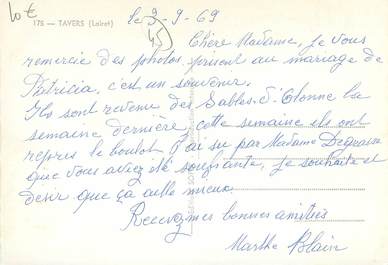 10€
178 — TAVERS (Loiret)
le 3-9-69
45
Chère Madame, je vous
remercie des photos, prisent au mariage de
Patricia, c'est un souvenir.
Ils sont revenu des Sables-d'Olonne la
semaine dernière, cette semaine ils ont
repris le boulot. J'ai su par Madame Degrasse
que vous aviez été souffrante, je souhaite et
désir que ça aille mieux.
Recevez mes bonnes amitiés
Marthe Blain